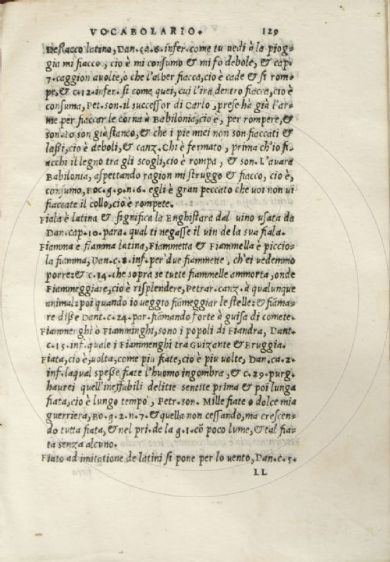 VOCABOLARIO. 129
Deflacco latino, Dan. ca. 6. infer. come tu uedi à la piog-
gia mi fiacco, cio è mi consumo et mi fo debole, et cap.
7. caggion auolte, o che l'alber fiacca, cio è cade et si rom-
pe, et c. 12. infer. si come quei, cui l'ira dentro fiacca, cio è
consuma, Pet. son. il successor di Carlo, prese hà già l'ar-
me per fiaccar le corna à Babilonia, cio è, per rompere, et
son. io son già stanco, et che i pie miei non son fiaccati et
lassi, cio è deboli, et canz. Chi è fermato, prima ch'io fi-
acchi il legno tra gli scogli, cio è rompa, et son. L'auara
Babilonia, aspettando ragion mi struggo et fiacco, cio è,
consumo, Boc. g. 9. n. 6. egli è gran peccato che uoi non ui
fiaccate il collo, cio è rompete.
Fiala è latina et significa la Enghistara dal uino usata da
Dan. cap. 10. para. qual ti negasse il vin de la sua fiala.
Fiamma è fiamma latina, Fiammetta et Fiammella è piccio-
la fiamma, Dan. c. 8. inf. per due fiammete, ch'ei uedemmo
porre: et c. 14. che sopra se tutte fiammelle ammorta, onde
Fiammeggiare, cio è risplendere, Petrar. canz. à qualunque
animal: poi quando io ueggio fiameggiar le stelle: et fiama-
re disse Dant. c. 24. par. fiamando forte è guisa di comete.
Fiammenghi o Fiamminghi, sono i popoli di Fiandra, Dant.
c. 15. inf. quale i Fiammenghi tra Guizante et Bruggia.
Fiata, cio è, uolta, come piu fiate, cio è piu uolte, Dan. ca. 2.
inf. laqual spesse fiate l'huomo ingombra, et c. 29. purg.
haurei quell'ineffabili delitie sentite prima et poi lunga
fiata, cio è lungo tempo, Petr. son. Mille fiate o dolce mia
guerriera, Bo. g. 2. n. 7. et quella non cessando, ma crescen-
do tutta fiata, et nel pri. de la g. 1. cō poco lume, et tal fia-
ta senza alcuno.
Fiato ad imitatione de latini si pone per lo uento, Dan. c. 5.
LL